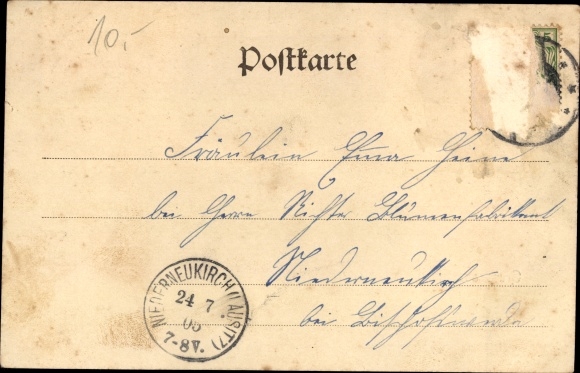 10.-
Postkarte
5
Fräulein Ema Heine
bei Herrn Richter Blumenfabrikant
Niederneukirch
bei Bischofswerda
NIEDERNEUKIRCH (LAUSITZ)
24 7
05
7-8V.